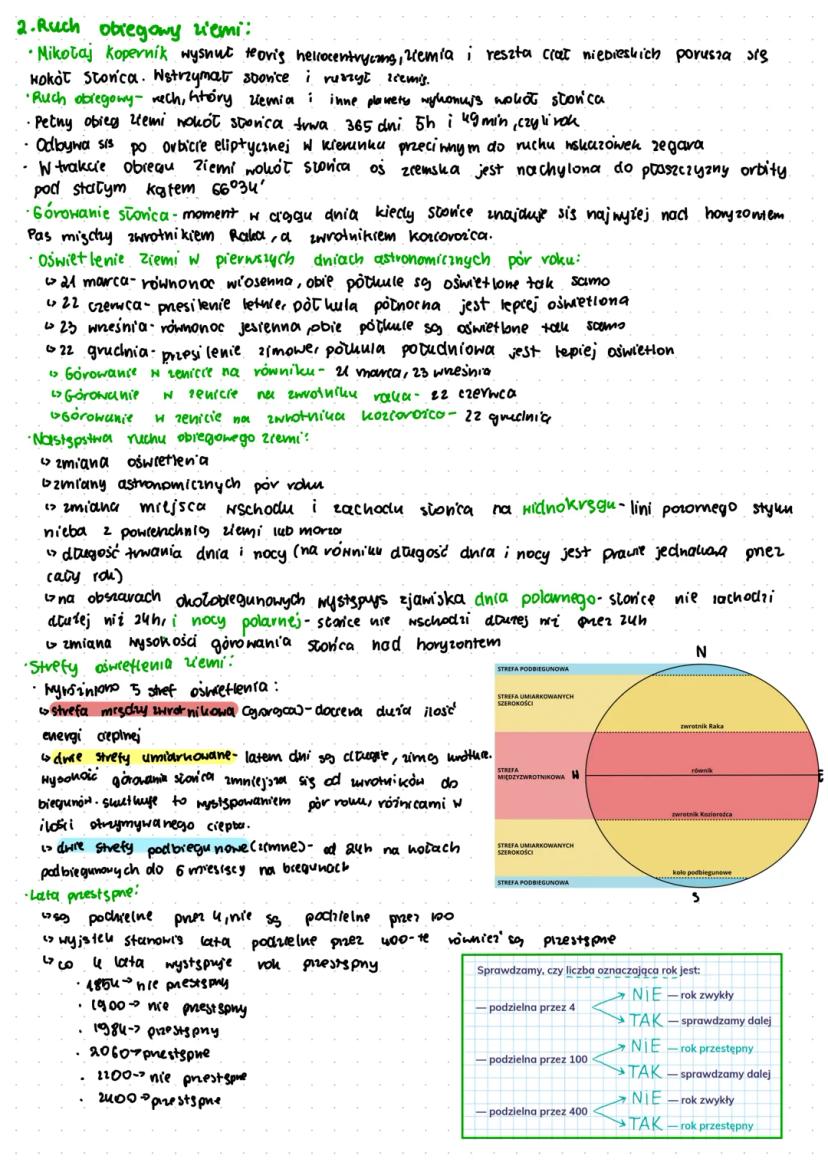 2. Ruch obiegowy ziemi:
· Mikołaj Kopernik wysnuł teorię heliocentryczną, ziemia i reszta ciał niebieskich porusza się
wokół Słońca. Wstrzymał słońce i ruszył ziemię.
· Ruch obiegowy- ruch, który ziemia i inne planety wykonują wokół słońca
· Pełny obieg ziemi wokół słońca trwa 365 dni 5h i 49 min, czyli rok
· Odbywa się po orbicie eliptycznej w kierunku przeciwnym do ruchu wskazówek zegara
· W trakcie obiegu ziemi wokół słońca oś ziemska jest nachylona do płaszczyzny orbity
pod stałym kątem 66°34'
· Górowanie słońca- moment w ciągu dnia kiedy słońce znajduje się najwyżej nad horyzontem
Pas między zwrotnikiem Raka, a zwrotnikiem koziorożca.
· Oświetlenie ziemi w pierwszych dniach astronomicznych pór roku:
↳ 21 marca- równonoc wiosenna, obie półkule są oświetlone tak samo
↳ 22 czerwca- przesilenie letnie, półkula północna jest lepiej oświetlona
↳ 23 września- równonoc jesienna, obie półkule są oświetlone tak samo
↳ 22 grudnia- przesilenie zimowe, półkula południowa jest lepiej oświetlon
↳ Górowanie w zenicie na równiku- 21 marca, 23 września
↳ Górowanie w zenicie na zwrotniku raka- 22 czerwca
↳ Górowanie w zenicie na zwrotnika koziorożca- 22 grudnia
· Następstwa ruchu obiegowego ziemi:
↳ zmiana oświetlenia
↳ zmiany astronomicznych pór roku
↳ zmiana miejsca wschodu i zachodu słońca na widnokręgu- lini pozornego styku
nieba z powierzchnią ziemi lub morza
↳ długość trwania dnia i nocy (na równiku długość dnia i nocy jest prawie jednakowa przez
cały rok)
↳ na obszarach okołobiegunowych występuję zjawiska dnia polarnego- słońce nie zachodzi
dłużej niż 24h, i nocy polarnej- słońce nie wschodzi dłużej niż przez 24h
↳ zmiana wysokości górowania słońca nad horyzontem
· Strefy oświetlenia ziemi:
· Wyróżniono 5 stref oświetlenia:
↳ strefa międzyzwrotnikowa (gorąca)- dociera duża ilość
energi cieplnej
↳ dwie strefy umiarkowane- latem dni są długie, zimą krótkie.
Wysokość górowania słońca zmniejsza się od zwrotników do
biegunów. skutkuje to występowaniem pór roku, różnicami w
ilości otrzymywanego ciepła.
↳ dwie strefy podbiegunowe (zimne)- od 24h na kołach
podbiegunowych do 6 miesięcy na biegunach
N
STREFA PODBIEGUNOWA
STREFA UMIARKOWANYCH
SZEROKOŚCI
zwrotnik Raka
STREFA
MIĘDZYZWROTNIKOWA
W
równik
E
zwrotnik Koziorożca
STREFA UMIARKOWANYCH
SZEROKOŚCI
koło podbiegunowe
STREFA PODBIEGUNOWA
S
· Lata przestępne:
↳ są podzielne przez 4, nie są podzielne przez 100
↳ wyjątek stanowią lata podzielne przez 400-te również są przestępne
↳ co 4 lata występuje rok przestępny
· 1854 → nie przestępny
· 1900 → nie przestępny
· 1984 → przestępny
· 2060 → przestępne
· 2200 → nie przestępne
· 2400 → przestępne
Sprawdzamy, czy liczba oznaczająca rok jest:
— podzielna przez 4
NIE — rok zwykły
TAK — sprawdzamy dalej
— podzielna przez 100
NIE — rok przestępny
TAK — sprawdzamy dalej
— podzielna przez 400
NIE — rok zwykły
TAK — rok przestępny